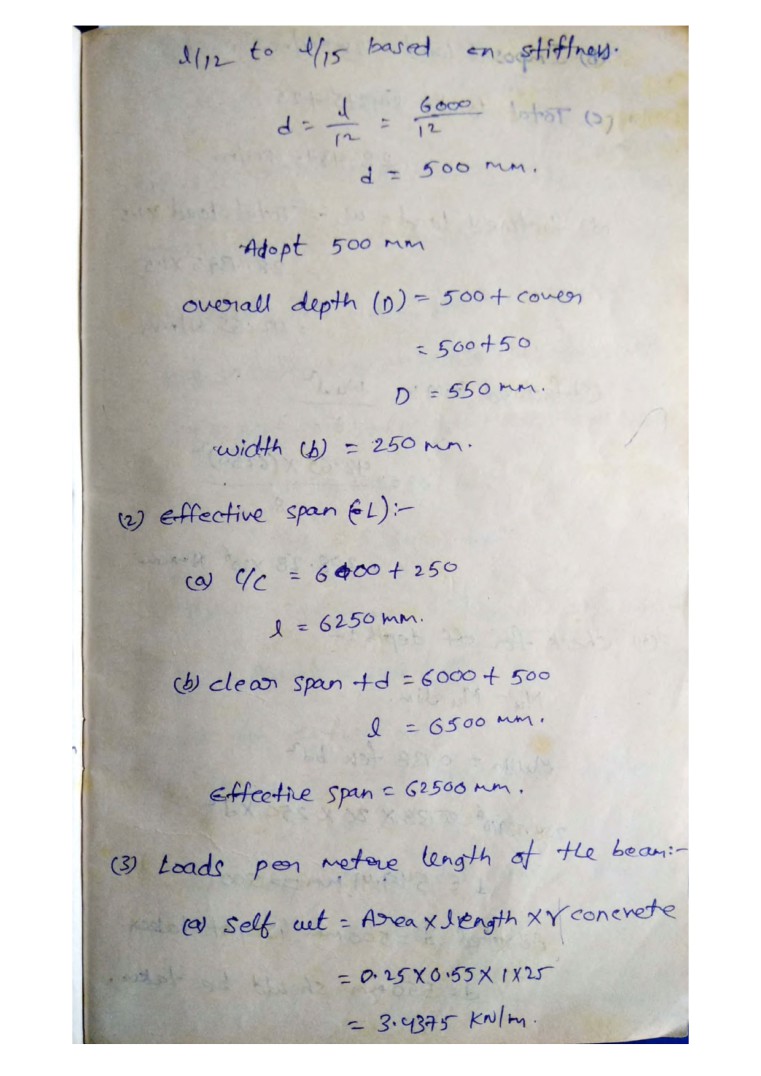 l/12 to l/15 based on stiffness.
d = l/12 = 6000/12
d = 500 mm.
Adopt 500 mm
overall depth (D) = 500 + cover
= 500 + 50
D = 550 mm.
width (b) = 250 mm.
(2) Effective span (L) :-
(a) C/C = 6000 + 250
l = 6250 mm.
(b) clear span + d = 6000 + 500
l = 6500 mm.
Effective span = 62500 mm.
(3) Loads per metere length of the beam:-
(a) Self wt = Area x length x γ concrete
= 0.25 X 0.55 X 1 X 25
= 3.4375 KN/m.